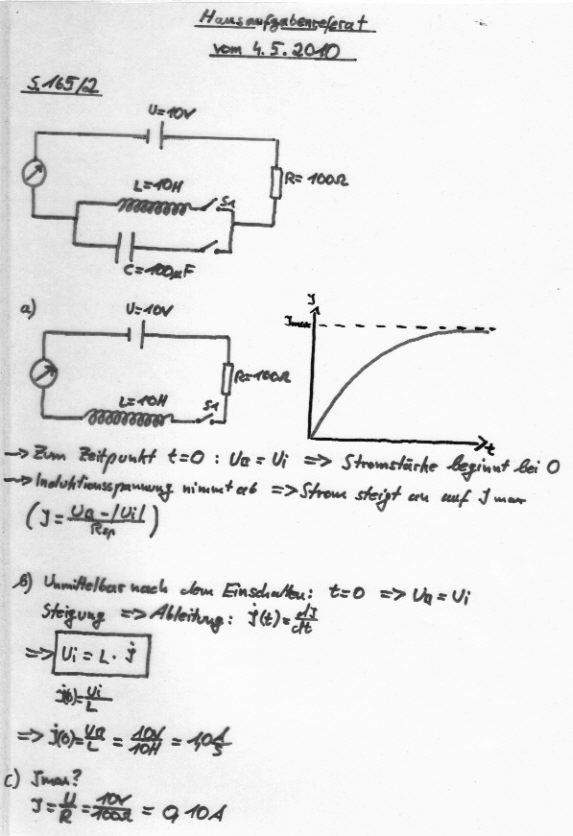 Hausaufgabenreferat
vom 4.5.2010
S.165/2
U=10V
R=100Ω
L=10H
S1
C=100μF
a)
U=10V
R=100Ω
L=10H
S1
J
Jmax
t
-> Zum Zeitpunkt t=0 : Ua = Ui => Stromstärke beginnt bei 0
-> Induktionsspannung nimmt ab => Strom steigt an auf Jmax
(J = Ua - |Ui| / Rsp)
b) Unmittelbar nach dem Einschalten: t=0 => Ua = Ui
Steigung => Ableitung: J̇(t) = dJ/dt
=> Ui = L · J̇
J̇(0) = Ui/L
=> J̇(0) = Ua/L = 10V/10H = 1,0 A/s
c) Jmax?
J = U/R = 10V/100Ω = 0,10A